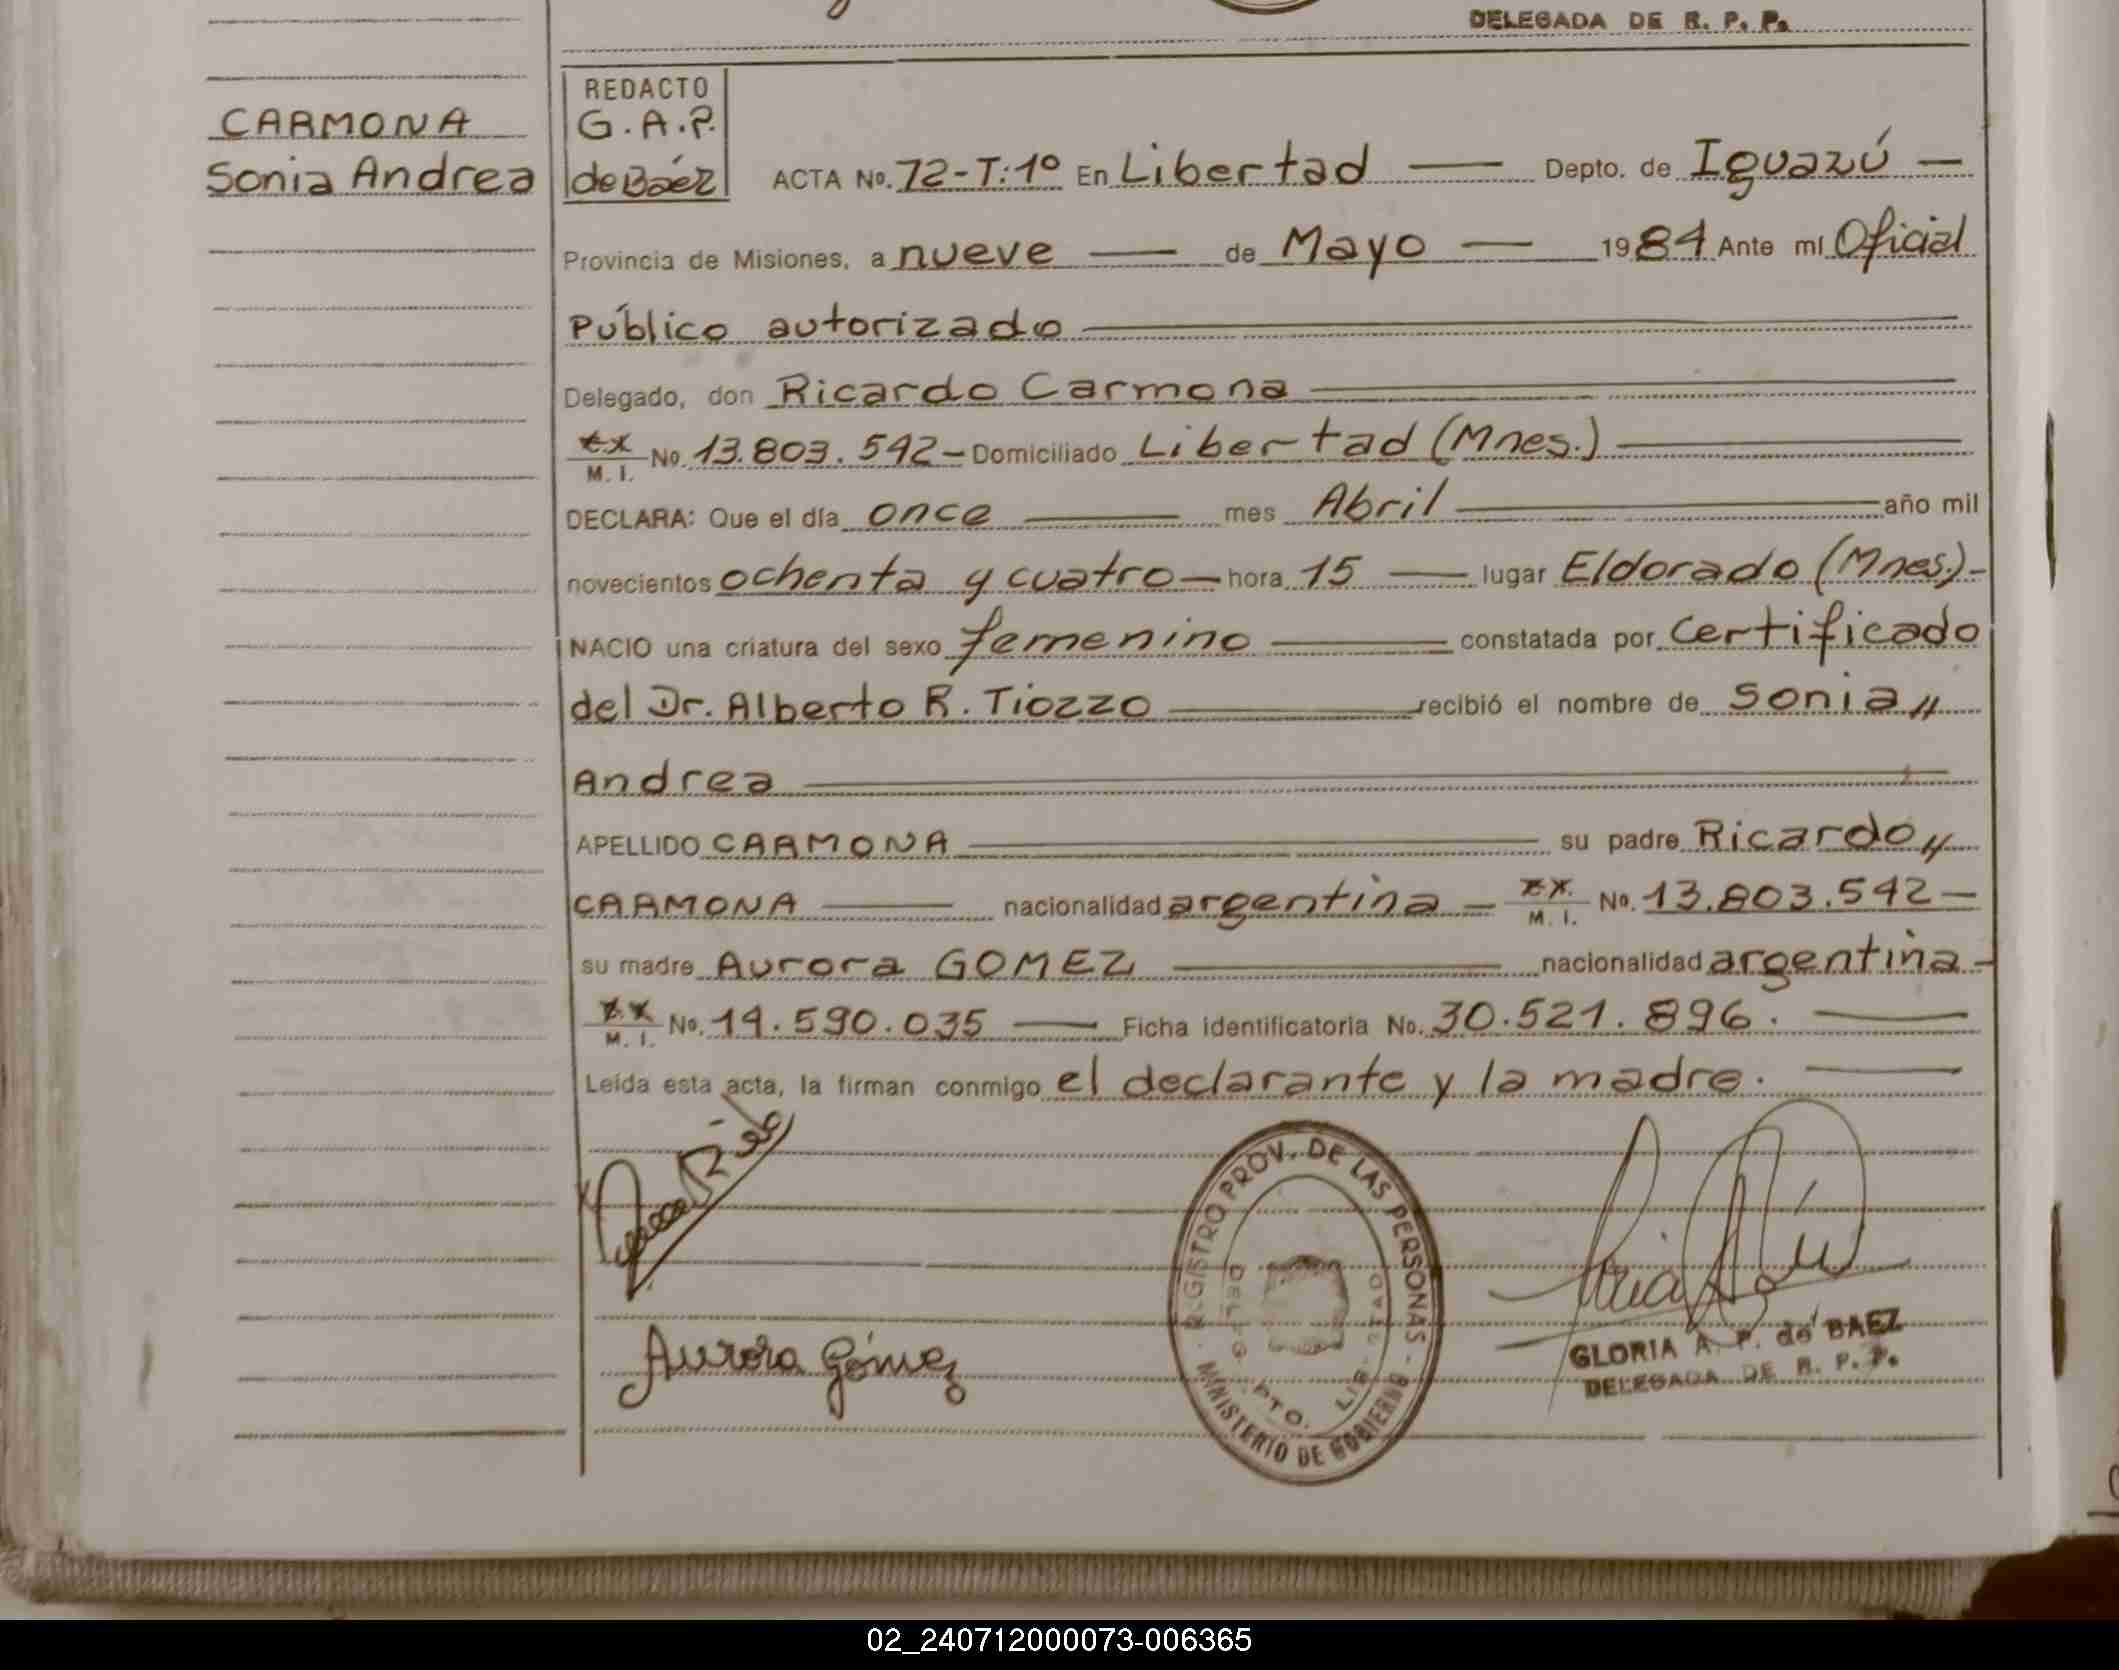 DELEGADA DE R. P. P.
CARMONA
Sonia Andrea
REDACTO
G.A.P.
de Báez
ACTA No. 72-T:1º En Libertad — Depto. de Iguazú —
Provincia de Misiones, a nueve — de Mayo — 1984 Ante mí Oficial
Público autorizado
Delegado, don Ricardo Carmona
M. I. No. 13.803.542 - Domiciliado Libertad (Mnes.)
DECLARA: Que el día once — mes Abril — año mil
novecientos ochenta y cuatro — hora 15 — lugar Eldorado (Mnes.) -
NACIO una criatura del sexo femenino — constatada por Certificado
del Dr. Alberto R. Tiozzo — recibió el nombre de Sonia //
Andrea
APELLIDO CARMONA — su padre Ricardo //
CARMONA — nacionalidad argentina — M. I. No. 13.803.542 —
su madre Aurora GOMEZ — nacionalidad argentina -
M. I. No. 14.590.035 — Ficha identificatoria No. 30.521.896. —
Leída esta acta, la firman conmigo el declarante y la madre. —
Aurora Gómez
REGISTRO PROV. DE LAS PERSONAS - MINISTERIO DE GOBIERNO
GLORIA A. P. de BAEZ
DELEGADA DE R. P. P.
02_240712000073-006365